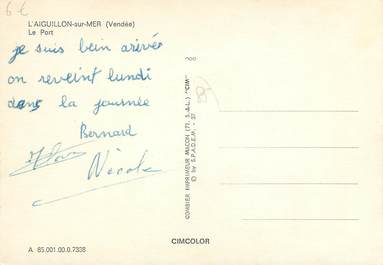 6€
L'AIGUILLON-sur-MER (Vendée)
Le Port
je suis bein arivée
on reveint lundi
dans la journée
Bernard
Nicole
COMBIER IMPRIMEUR MACON (71. S.-&-L.) "CIM"
© by S.P.A.D.E.M. - 37
CIMCOLOR
A 85.001.00.0.7308